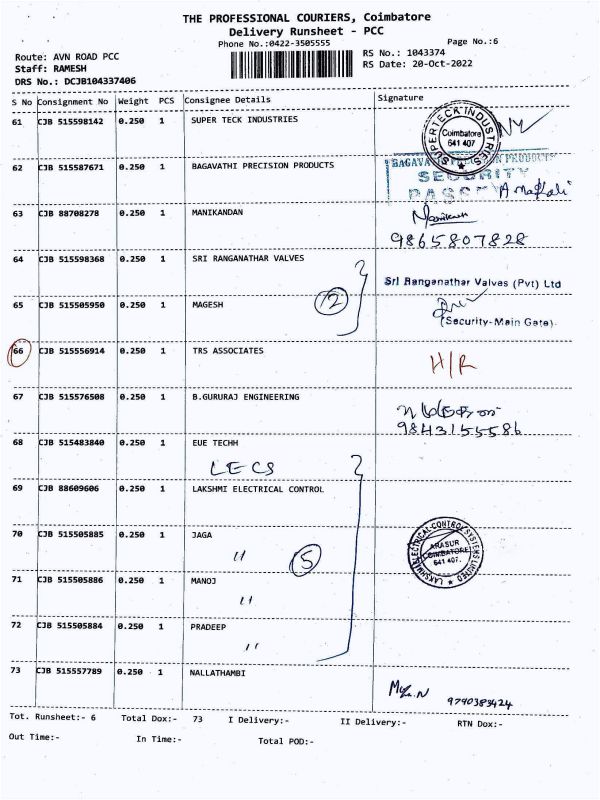 THE PROFESSIONAL COURIERS, Coimbatore
Delivery Runsheet - PCC
Phone No.:0422-3505555
Page No.:6
Route: AVN ROAD PCC
RS No.: 1043374
Staff: RAMESH
RS Date: 20-Oct-2022
DRS No.: DCJB104337406
S No Consignment No Weight PCS Consignee Details Signature
61 CJB 515598142 0.250 1 SUPER TECK INDUSTRIES
SUPERTECK INDUSTRIES
Coimbatore
641 407
62 CJB 515587671 0.250 1 BAGAVATHI PRECISION PRODUCTS
SECURITY
63 CJB 88708278 0.250 1 MANIKANDAN
9865807828
64 CJB 515598368 0.250 1 SRI RANGANATHAR VALVES
Sri Ranganathar Valves (Pvt) Ltd
2
65 CJB 515505950 0.250 1 MAGESH
(Security-Main Gate)
66 CJB 515556914 0.250 1 TRS ASSOCIATES H/R
67 CJB 515576508 0.250 1 B.GURURAJ ENGINEERING
9843155586
68 CJB 515483840 0.250 1 EUE TECHH
LECS
69 CJB 88609606 0.250 1 LAKSHMI ELECTRICAL CONTROL
70 CJB 515505885 0.250 1 JAGA
LAKSHMI ELECTRICAL CONTROL SYSTEMS LIMITED
ARASUR
COIMBATORE
641 407.
" 5
71 CJB 515505886 0.250 1 MANOJ
"
72 CJB 515505884 0.250 1 PRADEEP
"
73 CJB 515557789 0.250 1 NALLATHAMBI
9790389424
Tot. Runsheet:- 6 Total Dox:- 73 I Delivery:- II Delivery:- RTN Dox:-
Out Time:- In Time:- Total POD:-